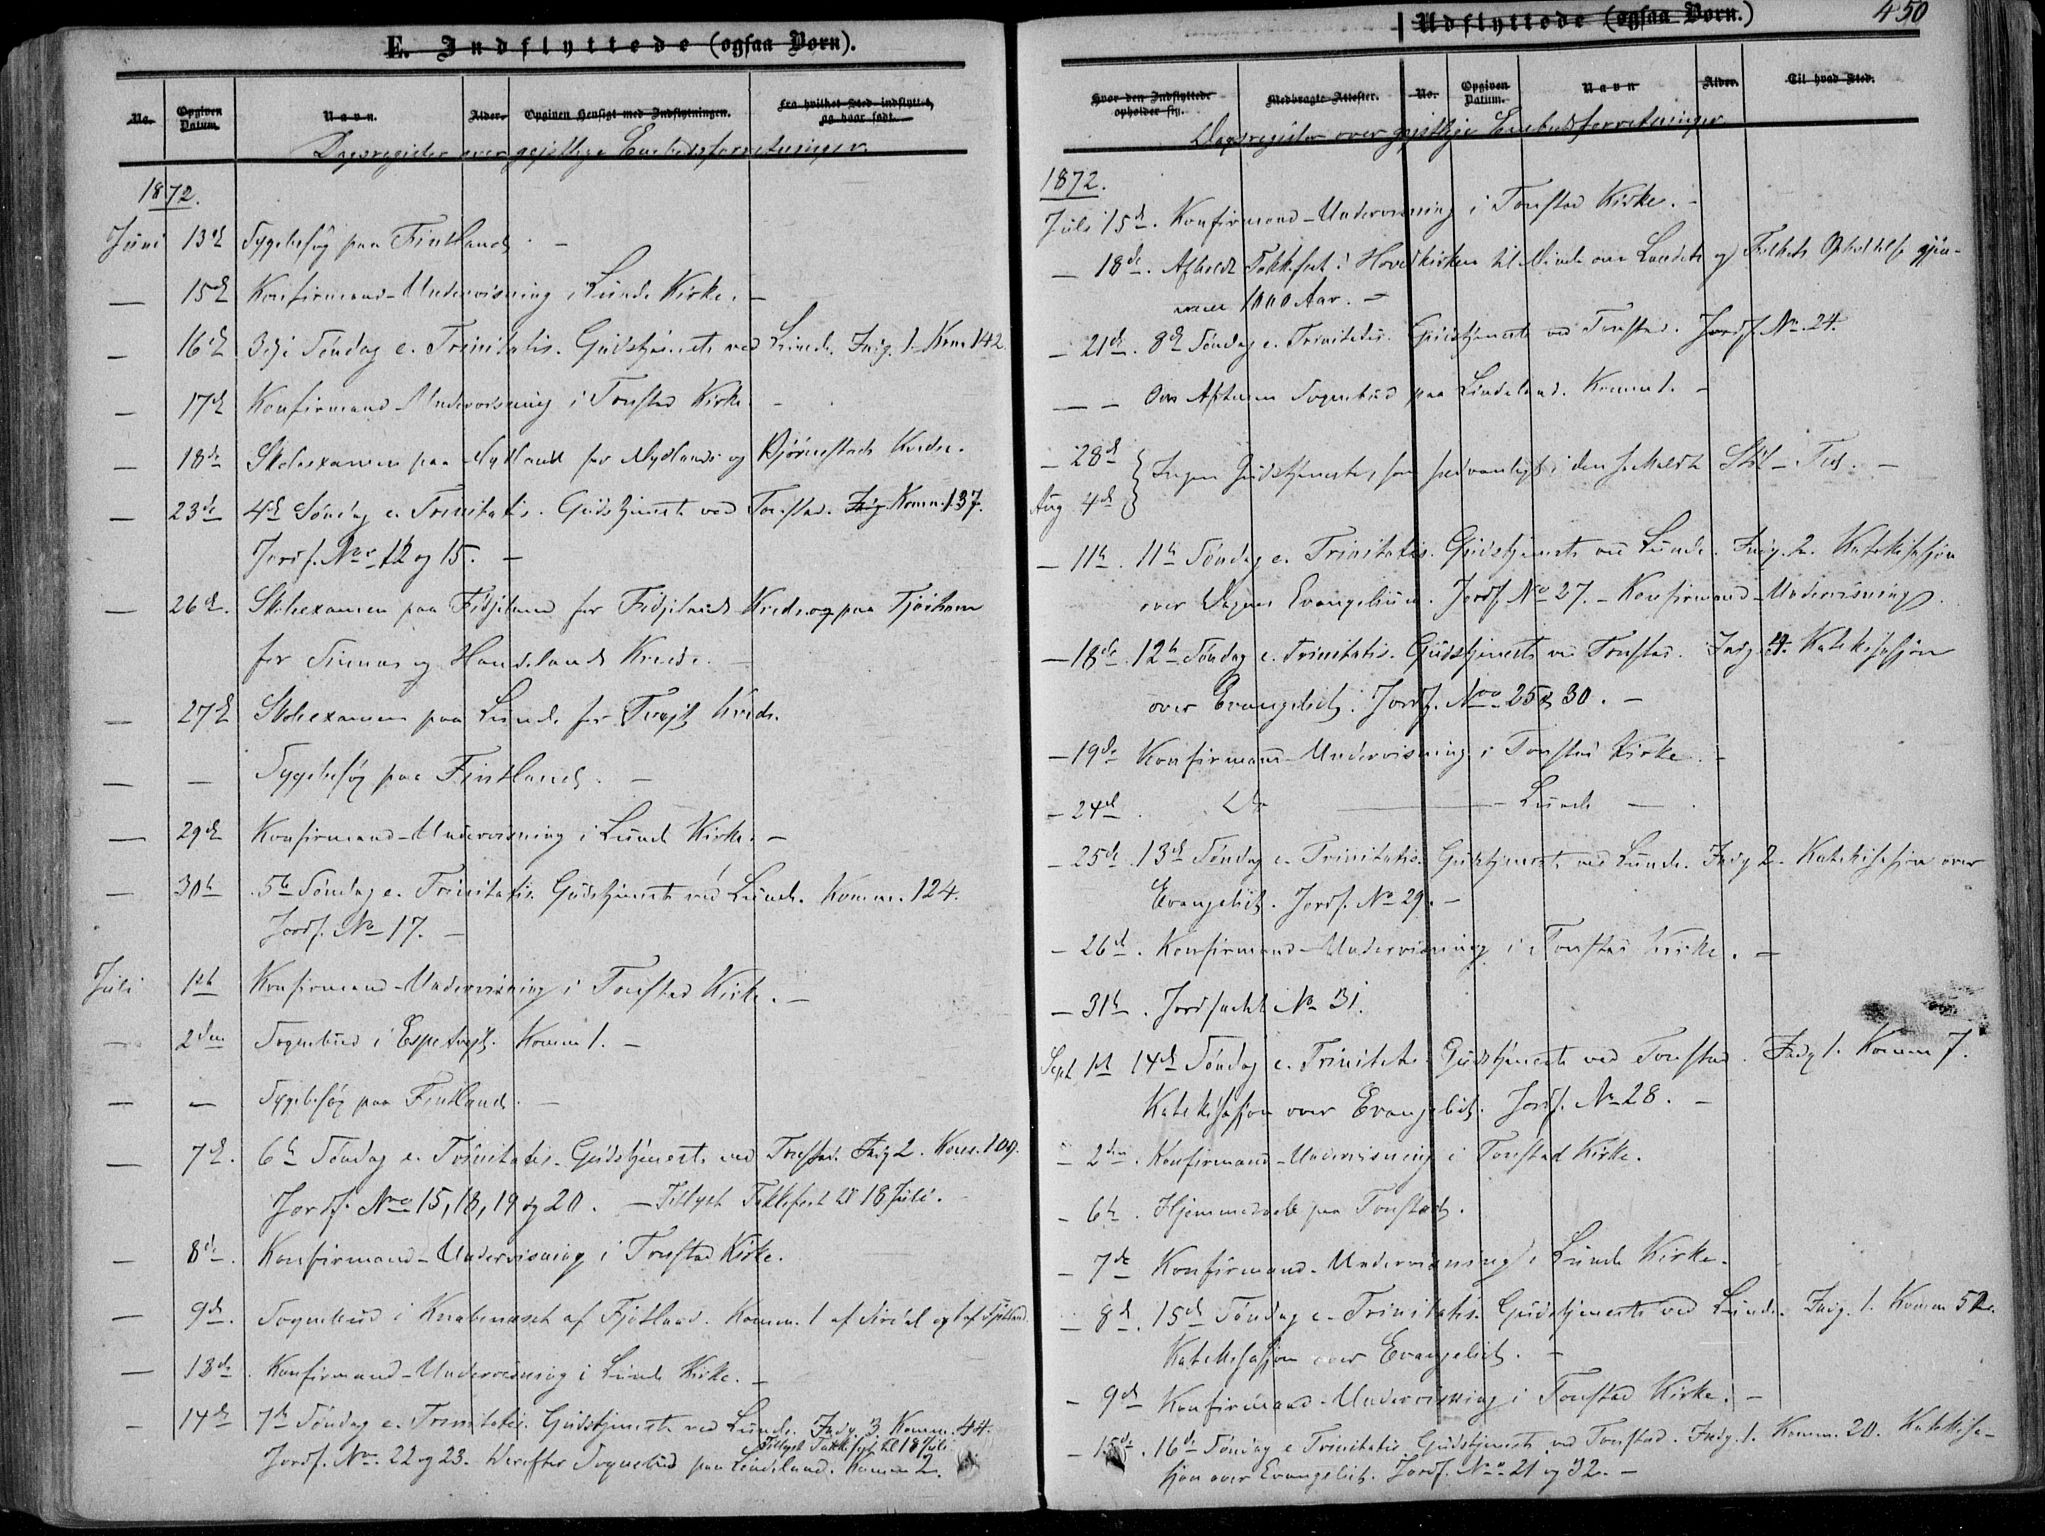 E. Indflyttede (ogsaa Børn).
No. Opgiven Datum. Navn. Alder. Opgiven Hensigt med Indflytningen. Fra hvilket Sted indflyttet, og hvor født.
Dagsregister over geistlige Embedsforretninger.
1872.
Juni 13de Sygebesøg paa Fintland. –
— 15de Konfirmand-Undervisning i Lunde Kirke. –
— 16de 3die Søndag e. Trinitatis. Gudstjeneste ved Lunde. Indg. 1. Kom. 142.
— 17de Konfirmand Undervisning i Tonstad Kirke. –
— 18de Skoleexamen paa Mydland for Mydlands og Bjørnestads Kredse.
— 23de 4de Søndag e. Trinitatis. Gudstjeneste ved Tonstad. Indg. Komm. 137.
Jordf. No 12 og 15. –
— 26de. Skoleexamen paa Fidjeland for Fidjelands Kreds og paa Tjørhom
for Sinnes og Houselands Kreds. –
— 27de Skoleexamen paa Lunde for Kreds.
— — Sygebesøg paa Fintland. –
— 29de Konfirmand-Undervisning i Lunde Kirke. –
— 30te 5te Søndag e. Trinitatis. Gudstjeneste ved Lunde. Komm. 124.
Jordf. No 17. –
Juli 1ste Konfirmand-Undervisning i Tonstad Kirke. –
— 2den Sognebud i Espetvejt. Komm 1. –
— — Sygebesøg paa Fintland. –
— 7de. 6te Søndag e. Trinitatis. Gudstjeneste ved Tonstad. Indg 2. Kom. 109.
Jordf. Nro 15, 18, 19 og 20. – Tillyst Takkefest til 18 Juli.
— 8de. Konfirmand-Undervisning i Tonstad Kirke.
— 9de. Sognebud i Knabenaset af Fjotland. Komm. 1 af Siredal og 1 af Fjotland.
— 13de. Konfirmand-Undervisning i Lunde Kirke. –
— 14de 7de Søndag e. Trinitatis. Gudstjeneste ved Lunde. Indg. 3. Komm. 44.
Tillyst Takkefest til 18 Juli
Jordf. No 22 og 23. Derefter Sognebud paa Lindeland. Komm 2.
Udflyttede (ogsaa Børn.) 450
Hvor den Indflyttede opholder sig. Medbragte Attester. No. Opgiven Datum. Navn Alder. Til hvad Sted.
Dagsregister over geistlige Embedsforretninger
1872.
Juli 15de. Konfirmand-Undervisning i Tonstad Kirke. –
— 18de. Afholdt Takkefest i Hovedkirken til Minde om Landets og Folkets Opholdelse gjen-
nem 1000 Aar. –
— 21de. 8de Søndag e. Trinitatis. Gudstjeneste ved Tonstad. Jordf. No 24.
— — Om Aftenen Sognebud paa Lindeland. Komm 1. –
— 28de } Ingen Gudstjeneste, som sædvanligt i den Stöl-Tid. –
Aug 4de
— 11te. 11te Søndag e. Trinitatis. Gudstjeneste ved Lunde. Indg. 2. Katekisasjon
over Dagens Evangelium. Jordf. No 27. – Konfirmand-Undervisning.
— 18de. 12te Søndag e. Trinitatis. Gudstjeneste ved Tonstad. Indg. 4. Katekisasjon
over Evangeliet. Jordf. Nro 25 & 30. –
— 19de Konfirmand-Undervisning i Tonstad Kirke. –
— 24de. Do — Lunde —
— 25de. 13de Søndag e. Trinitatis. Gudstjeneste ved Lunde. Indg 2. Katekisasjon over
Evangeliet. Jordf. No 29. –
— 26de. Konfirmand-Undervisning i Tonstad Kirke. –
— 31te. Jordfæstet No 31.
Sept. 1ste 14de Søndag e. Trinitatis Gudstjeneste ved Tonstad. Indg 1. Komm 7.
Katekisasjon over Evangeliet. Jordf. No 28. –
— 2den. Konfirmand-Undervisning i Tonstad Kirke.
— 6te. Hjemmedaab paa Tonstad.
— 7de Konfirmand-Undervisning i Lunde Kirke.
— 8de. 15de Søndag e. Trinitatis. Gudstjeneste ved Lunde. Indg. 1. Komm 52.
Katekisasjon over Evangeliet. –
— 9de Konfirmand-Undervisning i Tonstad Kirke. –
— 15de. 16de Søndag e Trinitatis Gudstjeneste ved Tonstad. Indg. 1. Komm. 20. Katekisa-
sjon over Evangeliet. Jordf. Nro 21 og 32. –